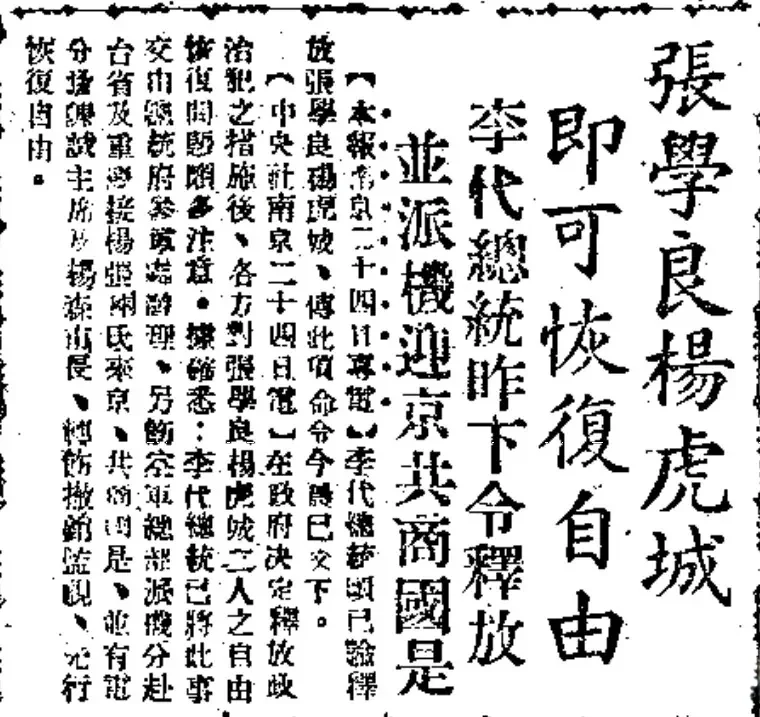 張學良楊虎城
即可恢復自由
李代總統昨下令釋放
並派機迎京共商國是
【本報南京二十四日專電】李代總統頃已諭釋
放張學良楊虎城、傳此項命令今晨已交下。
【中央社南京二十四日電】在政府決定釋放政
治犯之措施後、各方對張學良楊虎城二人之自由
恢復問題頗多注意。據確悉:李代總統已將此事
交由總統府參軍處辦理、另飭空軍總部派機分赴
台省及重慶接楊張兩氏來京、共商國是、並有電
分達陳誠主席及楊森市長、轉飭撤銷監視、先行
恢復自由。